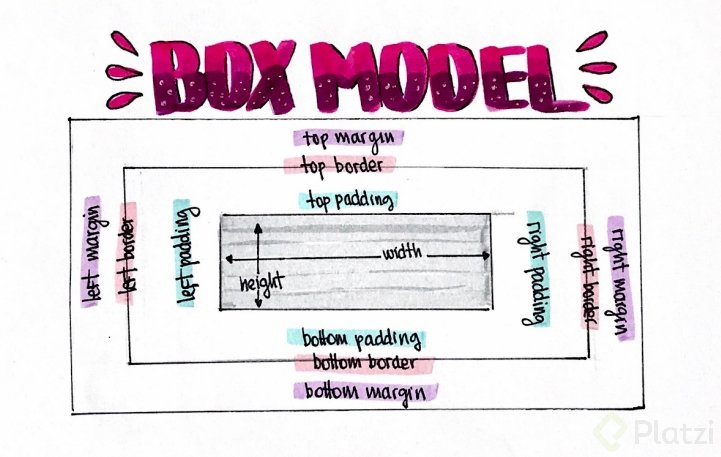 BOX MODEL
top margin
top border
top padding
left margin
left border
left padding
width
height
right padding
right border
right margin
bottom padding
bottom border
bottom margin
Platzi